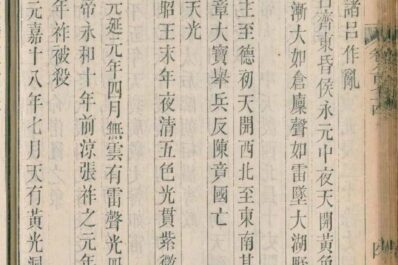 諸呂作亂
齊東昏侯永元中夜天開黃色
漸大如倉廩聲如雷墜大湖野
主至德初天開西北至東南其
章大寶舉兵反陳竟國亡
天光
昭王末年夜清五色光貫紫微
元延元年四月無雲有雷聲光四
帝永和十年前涼張祚之元年
年祚被殺
元嘉十八年七月天有黃光洞